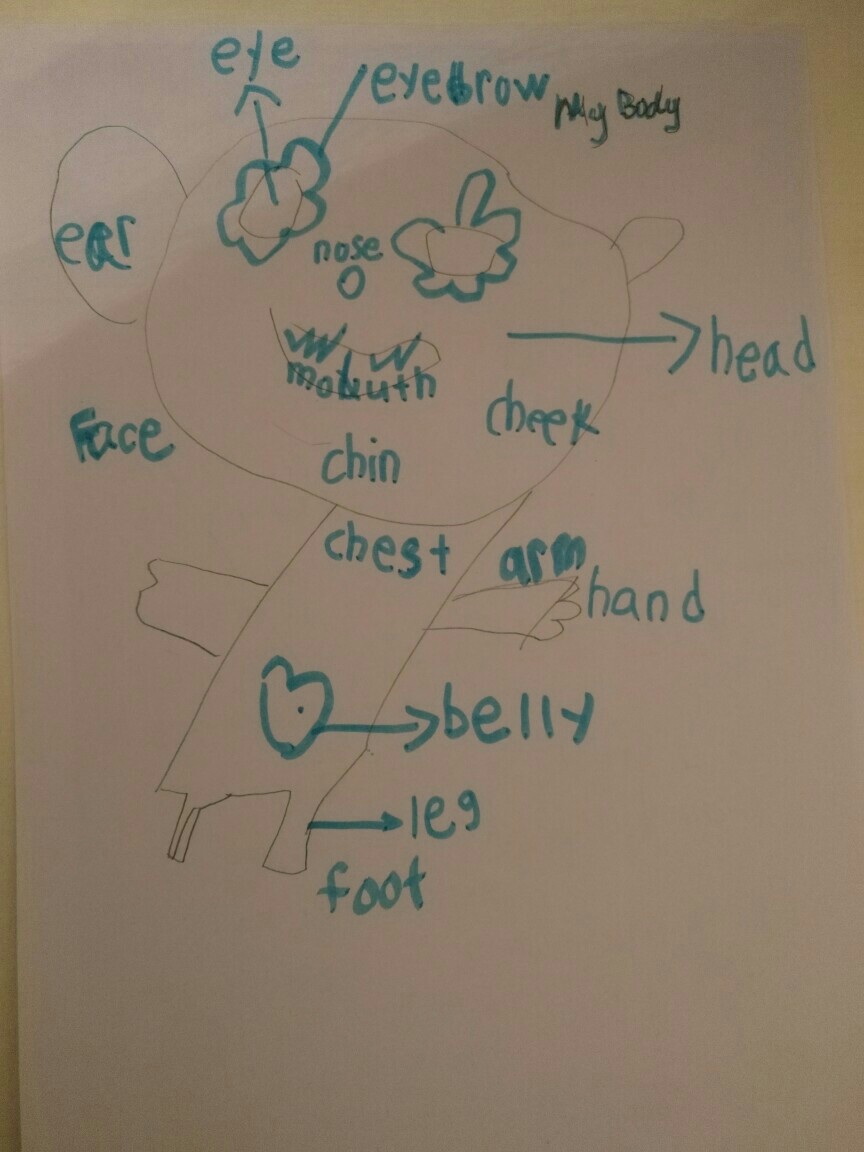 eye
eyebrow
My Body
ear
nose
head
mouuth
Face
cheek
chin
chest
arm
hand
belly
leg
foot